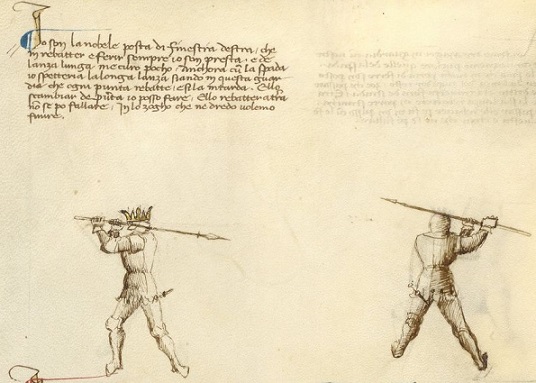 Io son la nobele posta di finestra destra, che
in rebatter e ferir sempre io son presta. e de
lanza lunga me curo pocho. Anchora cum la spada
io spetteria la longa lanza stando in questa guar
dia che ogni punta rebatte, e si la intarda. Ello
scambiar de punta io posso fare. Ello rebatter atra
non se po fallare. In lo zogho che me dredo volemo
finire.